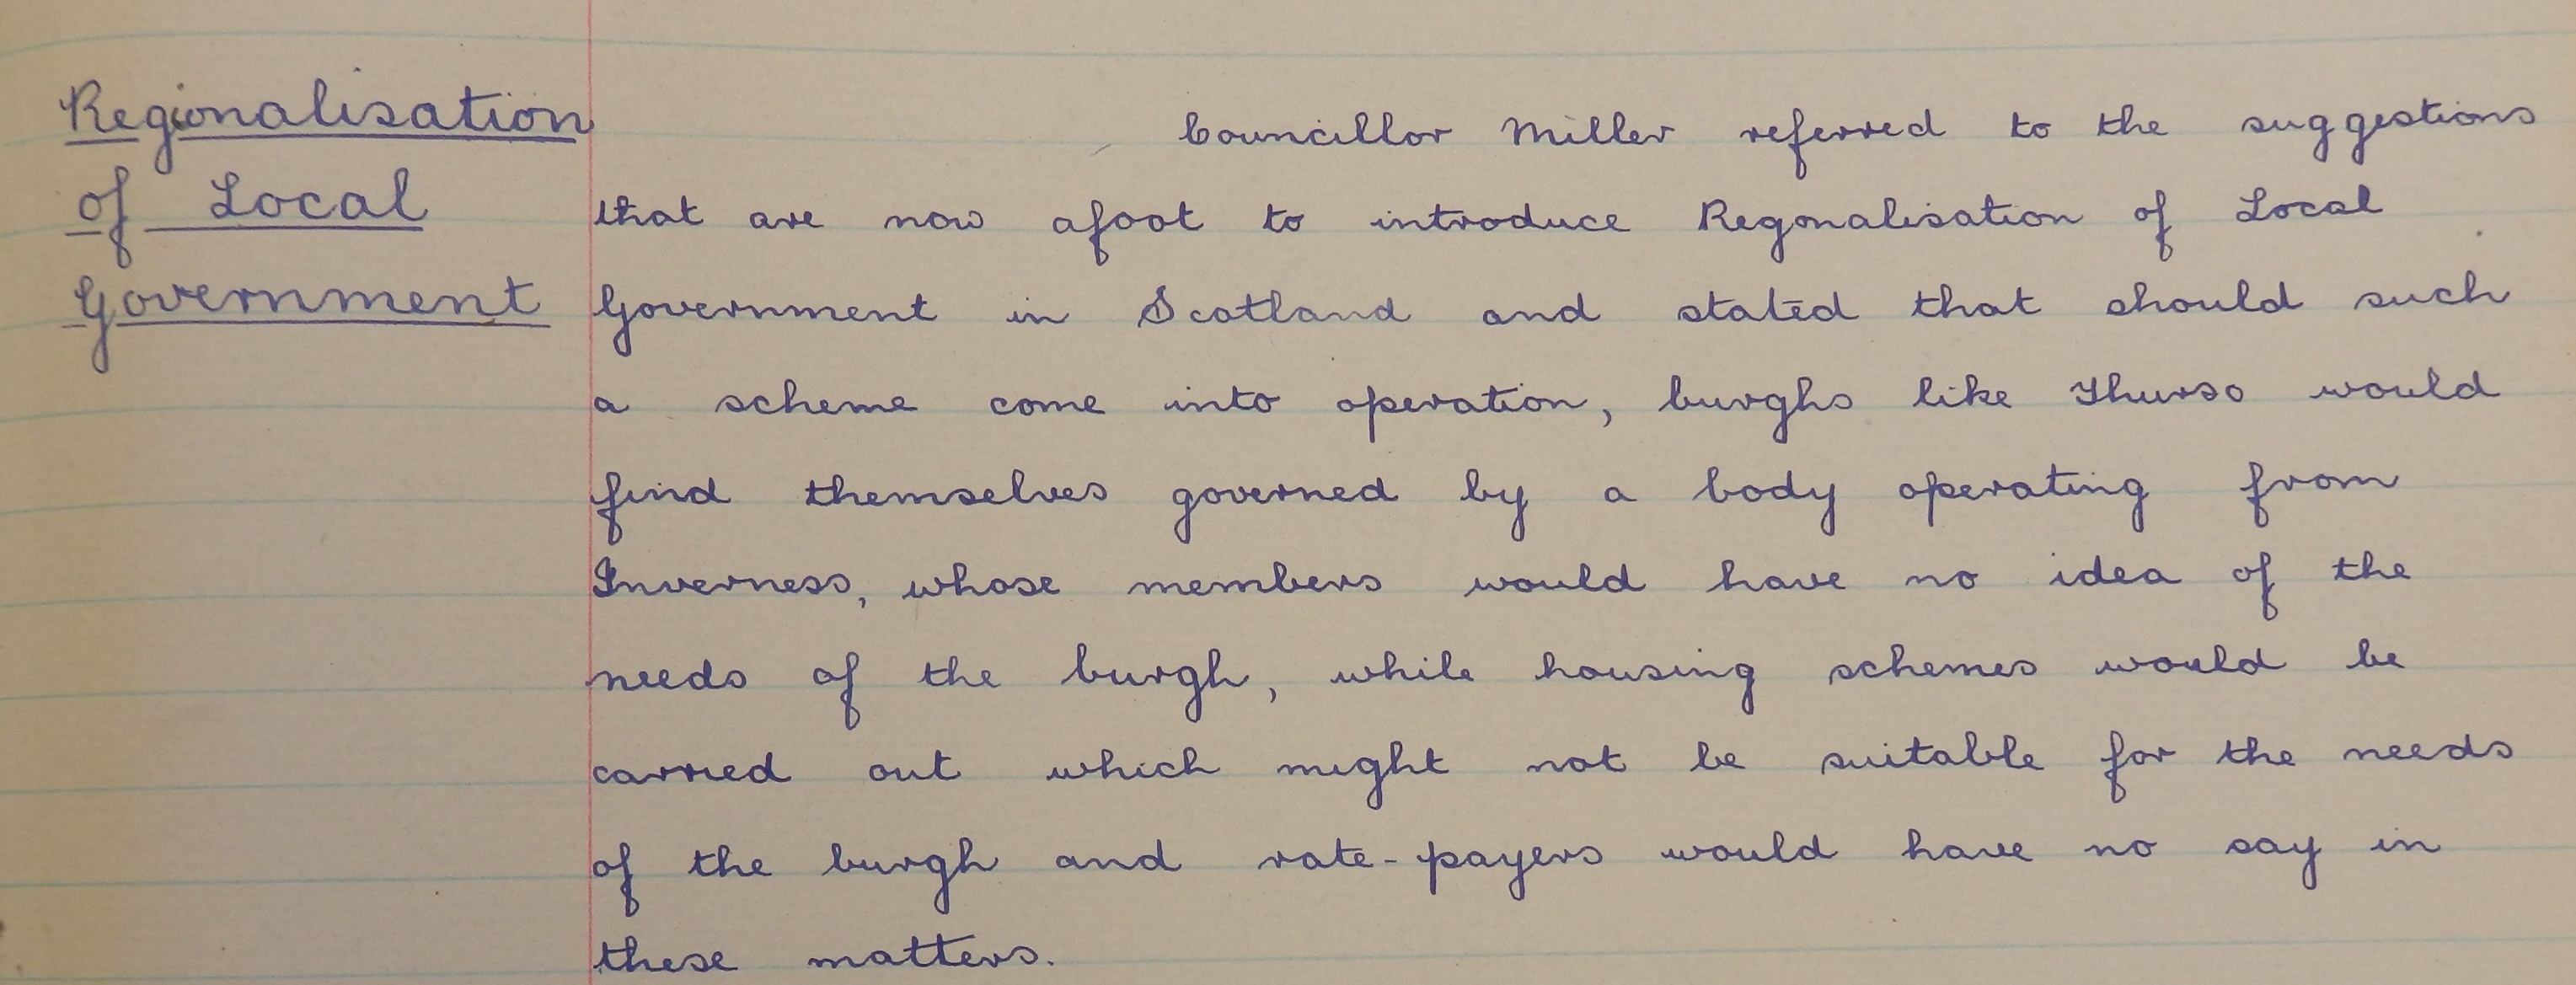 Regionalisation
of Local
Government
Councillor Miller referred to the suggestions
that are now afoot to introduce Regonalisation of Local
Government in Scotland and stated that should such
a scheme come into operation, burghs like Thurso would
find themselves governed by a body operating from
Inverness, whose members would have no idea of the
needs of the burgh, while housing schemes would be
carried out which might not be suitable for the needs
of the burgh and rate-payers would have no say in
these matters.